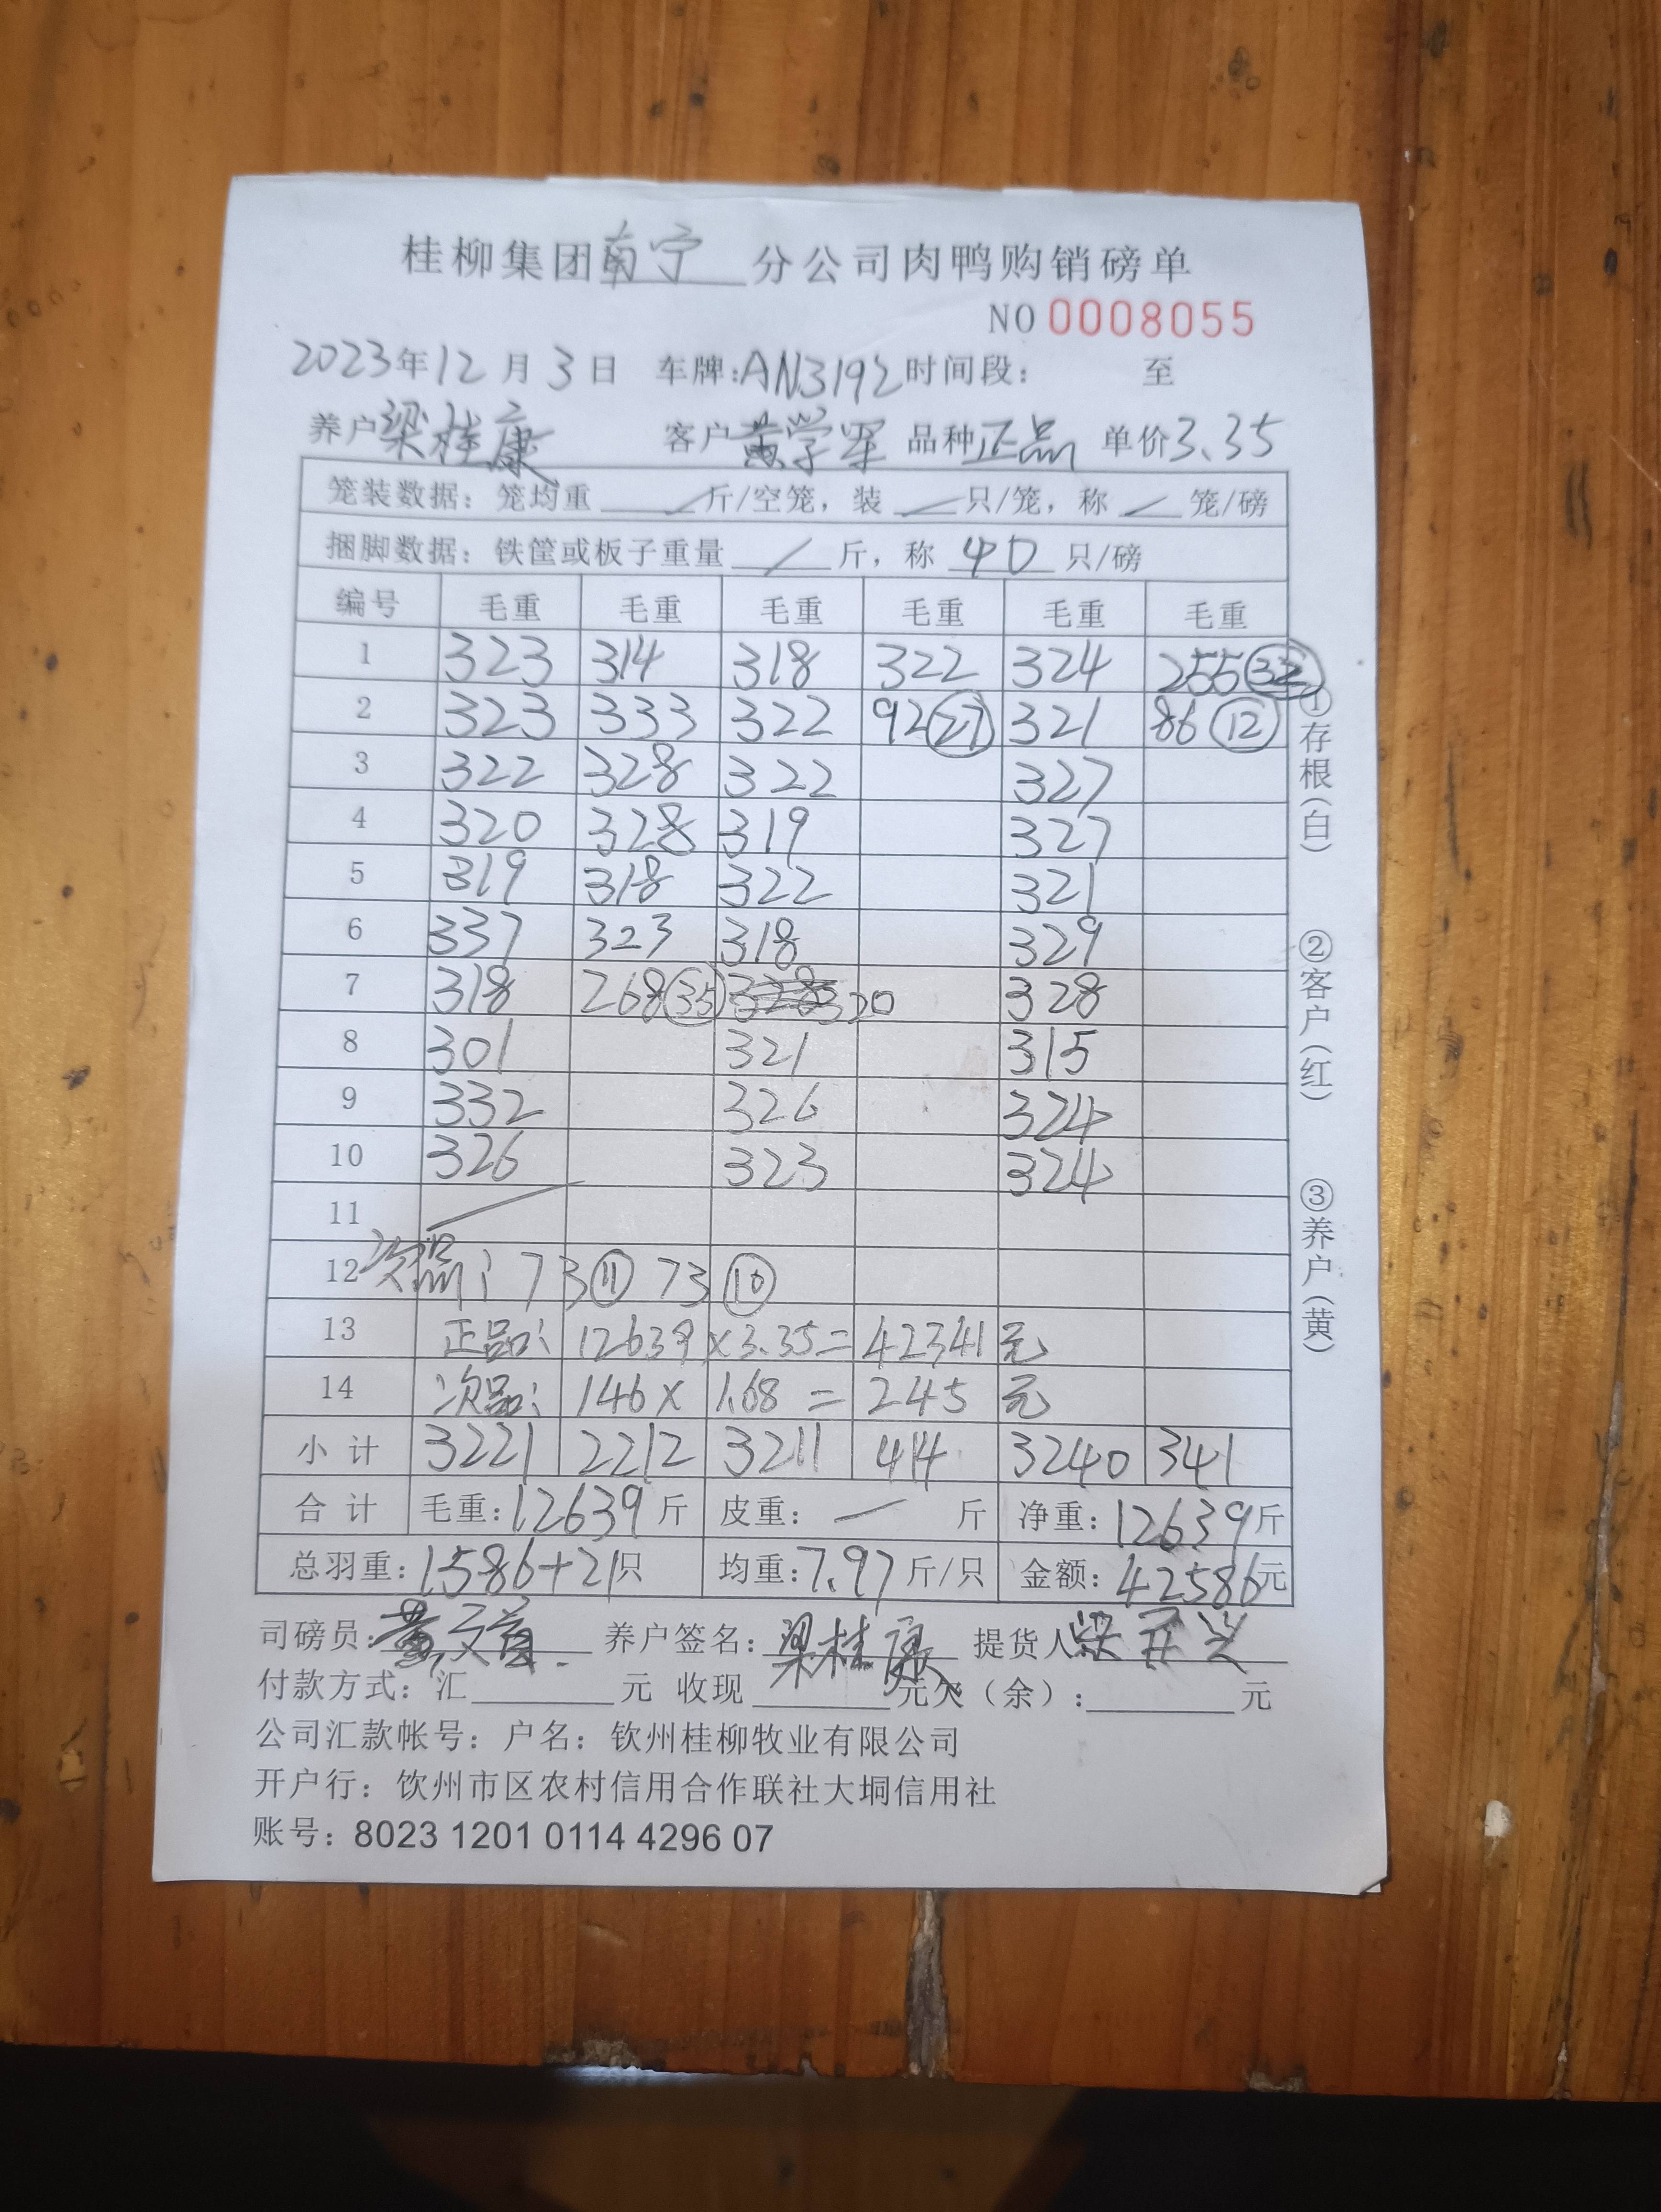 桂柳集团南宁分公司肉鸭购销磅单
NO 0008055
2023年12月3日 车牌:AN3192 时间段: 至
养户梁桂康 客户黄学军 品种正品 单价3.35
笼装数据: 笼均重 / 斤/空笼, 装 / 只/笼, 称 / 笼/磅
捆脚数据: 铁筐或板子重量 / 斤, 称 40 只/磅
编号 毛重 毛重 毛重 毛重 毛重 毛重
1 323 314 318 322 324 255 (32)
2 323 333 322 92 (27) 321 86 (12)
3 322 328 322 327
4 320 328 319 327
5 319 318 322 321
6 337 323 318 329
7 318 268 (35) 320 328
8 301 321 315
9 332 326 324
10 326 323 324
11 /
12 次品: 73 (11) 73 (10)
13 正品: 12639 × 3.35 = 42341 元
14 次品: 146 × 1.68 = 245 元
小计 3221 2212 3211 414 3240 341
合计 毛重:12639斤 皮重: / 斤 净重:12639斤
总羽重:1586+21只 均重:7.97斤/只 金额:42586元
司磅员: 养户签名:梁桂康 提货人
付款方式: 汇 元 收现 元欠(余): 元
公司汇款帐号: 户名: 钦州桂柳牧业有限公司
开户行: 钦州市区农村信用合作联社大垌信用社
账号: 8023 1201 0114 4296 07
①存根(白) ②客户(红) ③养户(黄)